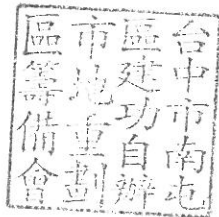 台中市南屯
區建功自辦
市地重劃
區籌備會